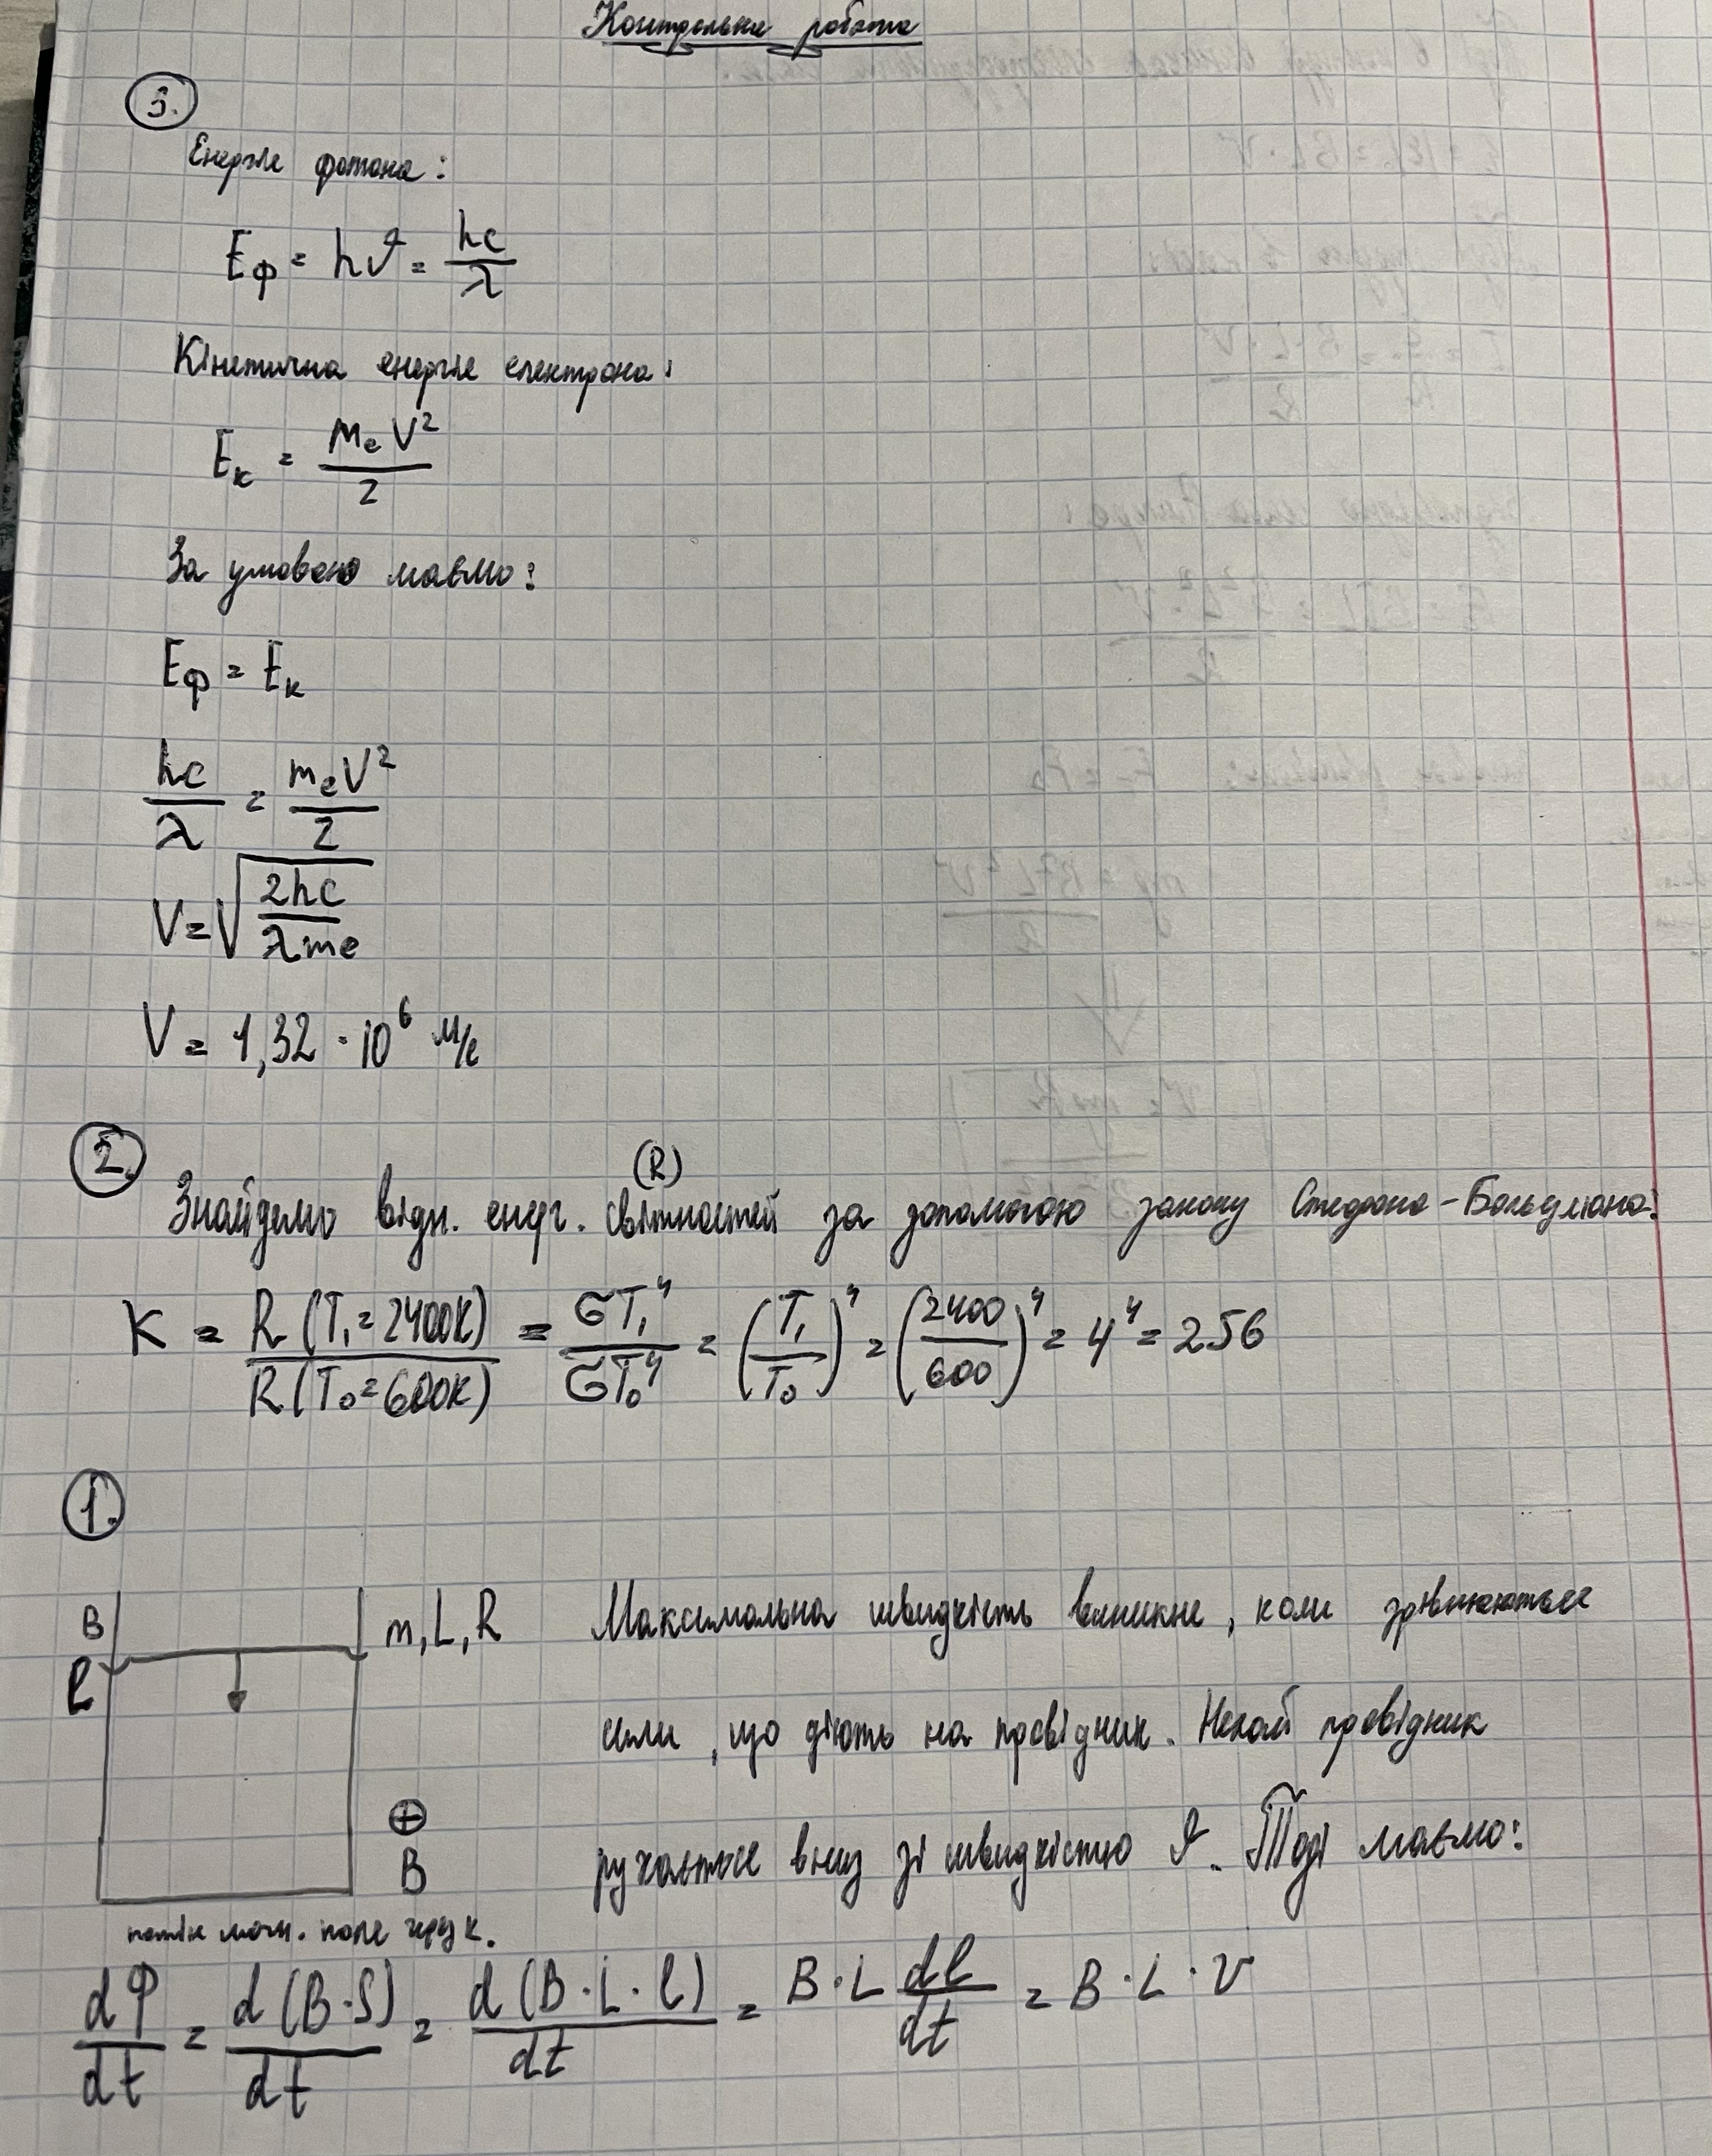 Контрольна робота
3.
Енергія фотона:
Eф = hν = hc/λ
Кінетична енергія електрона:
Eк = meV²/2
За умовою маємо:
Eф = Eк
hc/λ = meV²/2
V = √(2hc/λme)
V = 1,32 · 10⁶ м/с
2.
(R)
Знайдемо відн. енерг. світностей за допомогою закону Стефана-Больцмана:
K = R(T₁=2400K)/R(T₀=600K) = σT₁⁴/σT₀⁴ = (T₁/T₀)⁴ = (2400/600)⁴ = 4⁴ = 256
1.
B
m, L, R
Максимальна швидкість виникне, коли зрівняються
l
сили, що діють на провідник. Нехай провідник
⊕
B
рухається вниз зі швидкістю ϑ. Тоді маємо:
потік магн. поля через к.
dФ/dt = d(B·S)/dt = d(B·L·l)/dt = B·L dl/dt = B·L·v